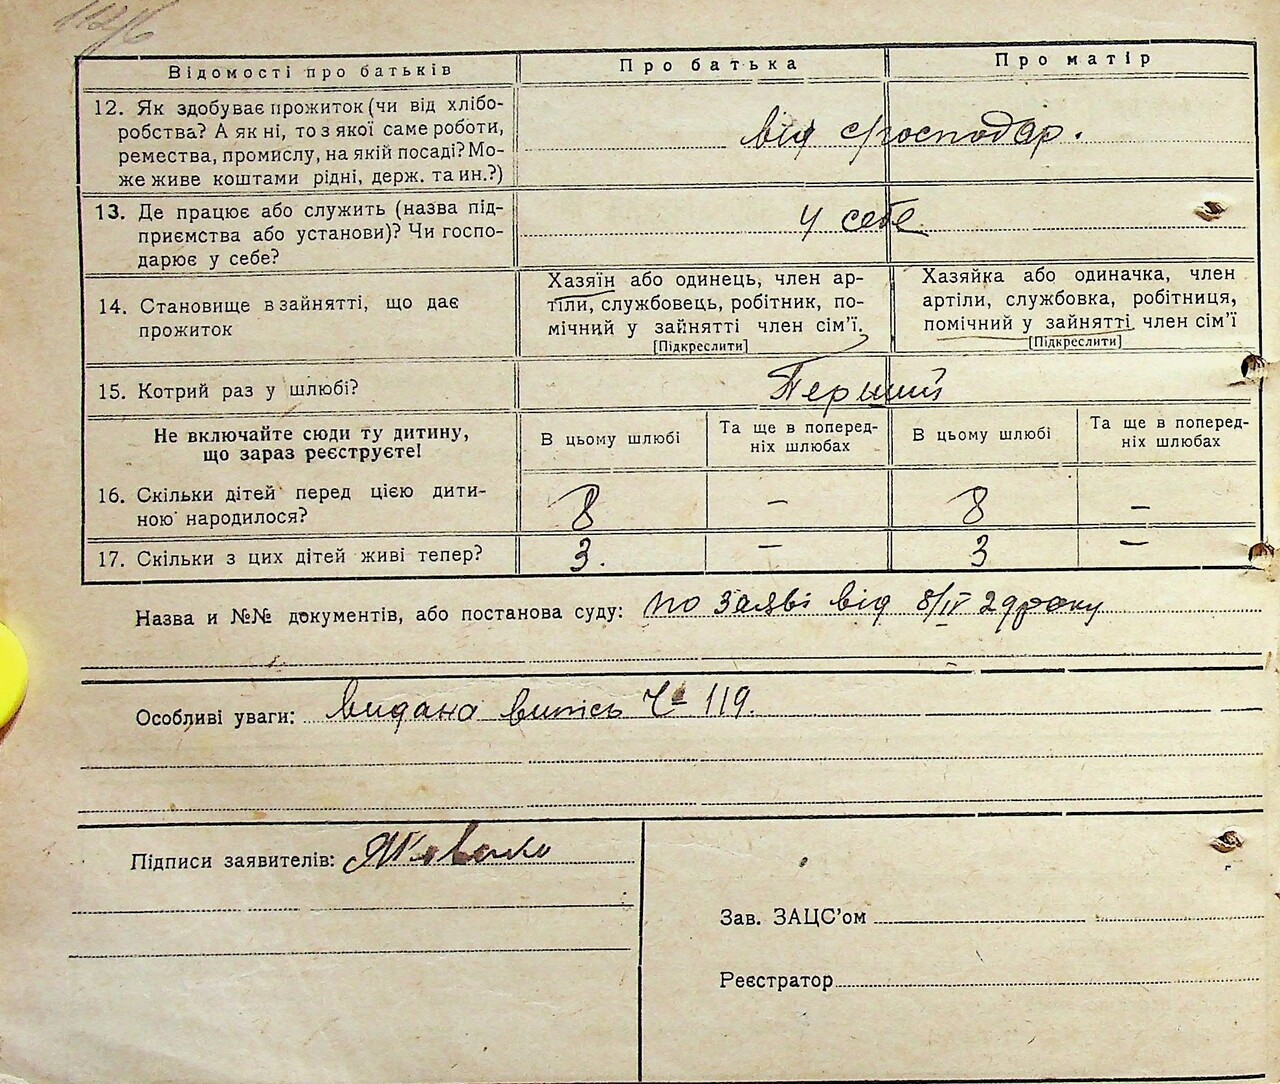 Відомості про батьків
Про батька
Про матір
12. Як здобуває прожиток (чи від хлібо-
робства? А як ні, то з якої саме роботи,
ремества, промислу, на якій посаді? Мо-
же живе коштами рідні, держ. та ин.?)
від господар.
13. Де працює або служить (назва під-
приємства або установи)? Чи госпо-
дарює у себе?
у себе
14. Становище в зайнятті, що дає
прожиток
Хазяїн або одинець, член ар-
тіли, службовець, робітник, по-
мічний у зайнятті член сім’ї.
[Підкреслити]
Хазяйка або одиначка, член
артіли, службовка, робітниця,
помічний у зайнятті член сім’ї
[Підкреслити]
15. Котрий раз у шлюбі?
Перший
Не включайте сюди ту дитину,
що зараз реєструєте!
В цьому шлюбі
Та ще в поперед-
ніх шлюбах
В цьому шлюбі
Та ще в поперед-
ніх шлюбах
16. Скільки дітей перед цією дити-
ною народилося?
8 – 8 –
17. Скільки з цих дітей живі тепер?
3. – 3 –
Назва и №№ документів, або постанова суду: по заяві від 8/IV 29 року
Особливі уваги: видана випись Ч 119.
Підписи заявителів:
Зав. ЗАЦС’ом
Реєстратор